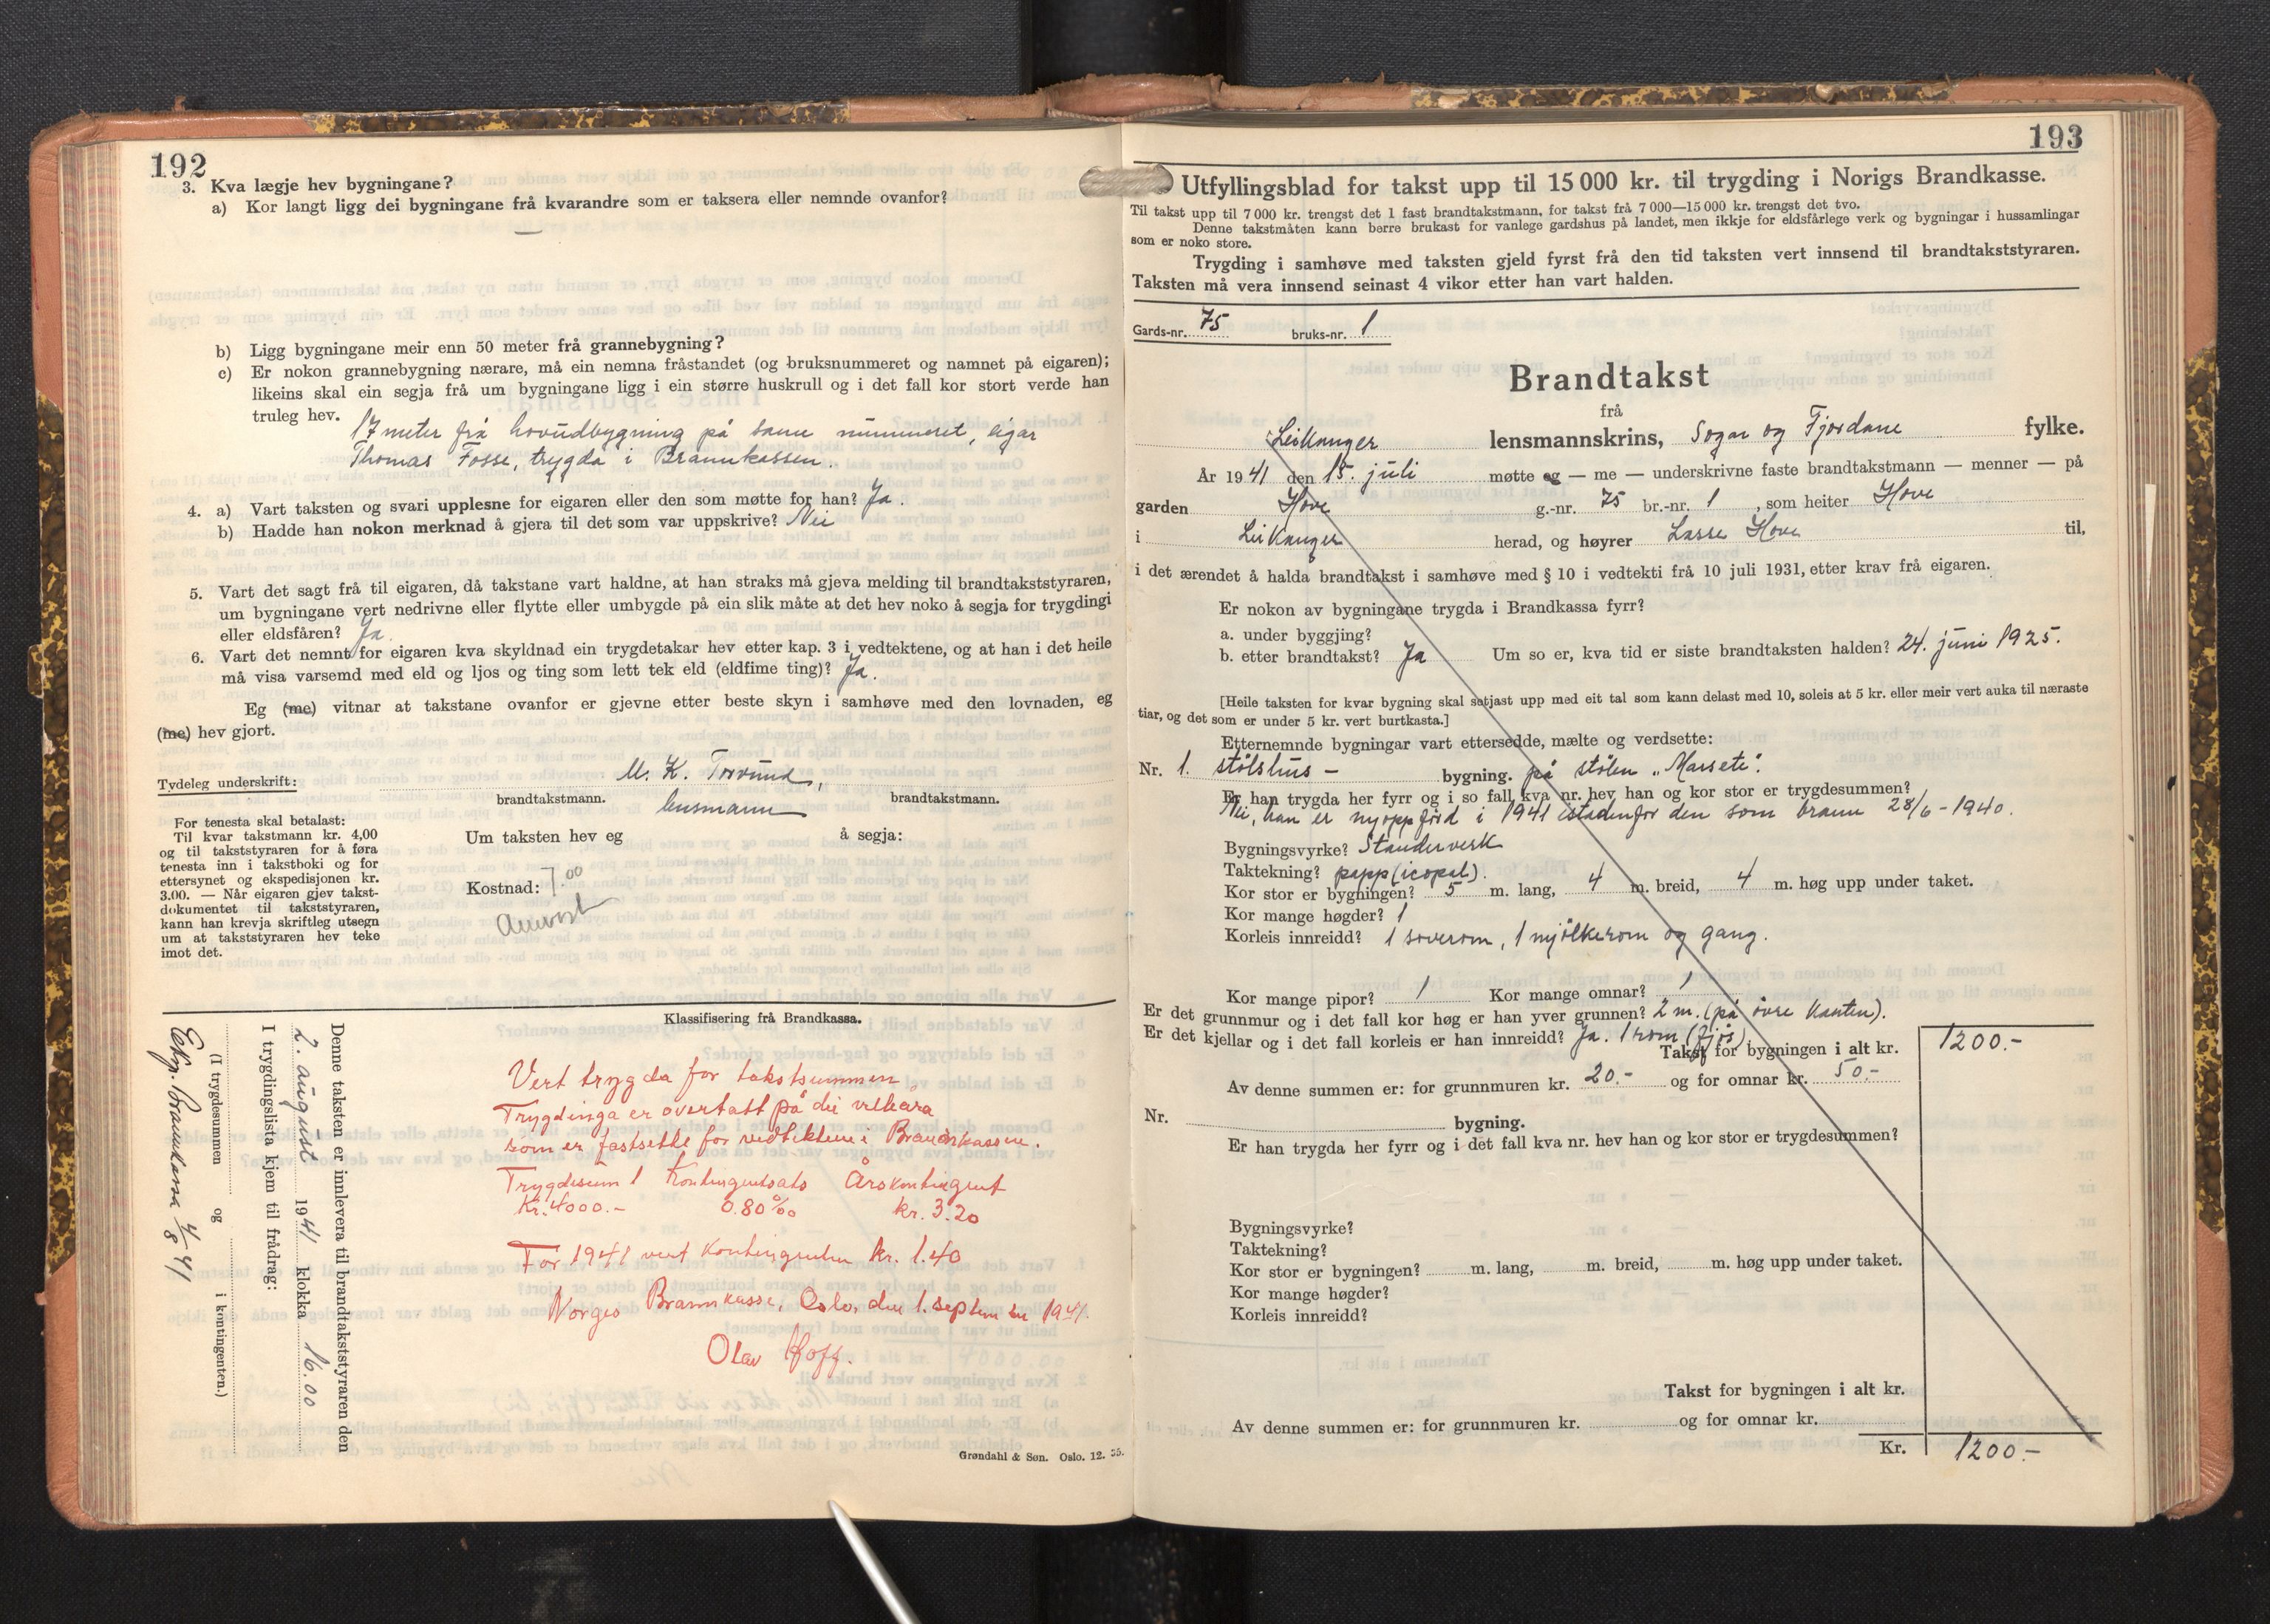 192
3. Kva lægje hev bygningane?
a) Kor langt ligg dei bygningane frå kvarandre som er taksera eller nemnde ovanfor?
—
b) Ligg bygningane meir enn 50 meter frå grannebygning?
c) Er nokon grannebygning nærare, må ein nemna fråstandet (og bruksnummeret og namnet på eigaren);
likeins skal ein segja frå um bygningane ligg i ein større huskrull og i det fall kor stort verde han
truleg hev.
17 meter frå hovudbygning på same nummeret, eigar
Thomas Fosse, trygda i Brannkassen.
4. a) Vart taksten og svari upplesne for eigaren eller den som møtte for han? Ja.
b) Hadde han nokon merknad å gjera til det som var uppskrive? Nei
5. Vart det sagt frå til eigaren, då takstane vart haldne, at han straks må gjeva melding til brandtakststyraren,
um bygningane vert nedrivne eller flytte eller umbygde på ein slik måte at det hev noko å segja for trygdingi
eller eldsfåren? Ja.
6. Vart det nemnt for eigaren kva skyldnad ein trygdetakar hev etter kap. 3 i vedtektene, og at han i det heile
må visa varsemd med eld og ljos og ting som lett tek eld (eldfime ting)? Ja.
Eg (me) vitnar at takstane ovanfor er gjevne etter beste skyn i samhøve med den lovnaden, eg
(me) hev gjort.
Tydeleg underskrift: M. K. Torvund,
brandtakstmann. lensmann brandtakstmann.
For tenesta skal betalast:
Til kvar takstmann kr. 4,00
og til takststyraren for å føra
tenesta inn i takstboki og for
ettersynet og ekspedisjonen kr.
3.00. — Når eigaren gjev takst-
dokumentet til takststyraren,
kann han krevja skriftleg utsegn
um at takststyraren hev teke
imot det.
Um taksten hev eg å segja:
Kostnad: 7.00
Klassifisering frå Brandkassa.
Vert trygda for takstsummen.
Trygdinga er overtatt på dei vilkåra
som er fastsette for vedtektene i Brandkassen.
Trygdesum Kontingentsats Årskontingent
Kr. 4000.- 0.80 ‰ kr. 3.20
For 1941 vert kontingenten kr. 1.40
Norges Brannkasse, Oslo, den 1. september 1941.
Olav Hoff.
Denne taksten er innlevera til brandtakststyraren den
2. august 1941 klokka 16.00
I trygdingslista kjem til frådrag:
(I trygdesummen og i kontingenten.)
Eksp. Brannkassa 4/8 41
Grøndahl & Søn. Oslo. 12. 35.
193
Utfyllingsblad for takst upp til 15 000 kr. til trygding i Norigs Brandkasse.
Til takst upp til 7 000 kr. trengst det 1 fast brandtakstmann, for takst frå 7 000—15 000 kr. trengst det tvo.
Denne takstmåten kann berre brukast for vanlege gardshus på landet, men ikkje for eldsfårlege verk og bygningar i hussamlingar
som er noko store.
Trygding i samhøve med taksten gjeld fyrst frå den tid taksten vert innsend til brandtakststyraren.
Taksten må vera innsend seinast 4 vikor etter han vart halden.
Gards-nr. 75 bruks-nr. 1
Brandtakst
frå
Leikanger lensmannskrins, Sogn og Fjordane fylke.
År 1941 den 15. juli møtte eg — me — underskrivne faste brandtakstmann — menner — på
garden Hove g.-nr. 75 br.-nr. 1, som heiter Hove
i Leikanger herad, og høyrer Lasse Hove til,
i det ærendet å halda brandtakst i samhøve med § 10 i vedtekti frå 10 juli 1931, etter krav frå eigaren.
Er nokon av bygningane trygda i Brandkassa fyrr?
a. under byggjing?
b. etter brandtakst? Ja Um so er, kva tid er siste brandtaksten halden? 24. juni 1925.
[Heile taksten for kvar bygning skal setjast upp med eit tal som kann delast med 10, soleis at 5 kr. eller meir vert auka til næraste
tiar, og det som er under 5 kr. vert burtkasta.]
Etternemnde bygningar vart ettersedde, mælte og verdsette:
Nr. 1. stølshus - bygning. på stølen „Marsete".
Er han trygda her fyrr og i so fall kva nr. hev han og kor stor er trygdesummen?
Nei, han er nyoppförd i 1941 istadenfor den som brann 28/6 - 1940.
Bygningsvyrke? Standerverk
Taktekning? papp (icopal).
Kor stor er bygningen? 5 m. lang, 4 m. breid, 4 m. høg upp under taket.
Kor mange høgder? 1
Korleis innreidd? 1 soverom, 1 mjölkerom og gang.
Kor mange pipor? 1 Kor mange omnar? 1
Er det grunnmur og i det fall kor høg er han yver grunnen? 2 m. (på övre kanten).
Er det kjellar og i det fall korleis er han innreidd? Ja. 1 rom (fjös)
Takst for bygningen i alt kr. 1200.-
Av denne summen er: for grunnmuren kr. 20.- og for omnar kr. 50.-
Nr. bygning.
Er han trygda her fyrr og i det fall kva nr. hev han og kor stor er trygdesummen?
Bygningsvyrke?
Taktekning?
Kor stor er bygningen? m. lang, m. breid, m. høg upp under taket.
Kor mange høgder?
Korleis innreidd?
Takst for bygningen i alt kr.
Av denne summen er: for grunnmuren kr. og for omnar kr.
Kr. 1200.-